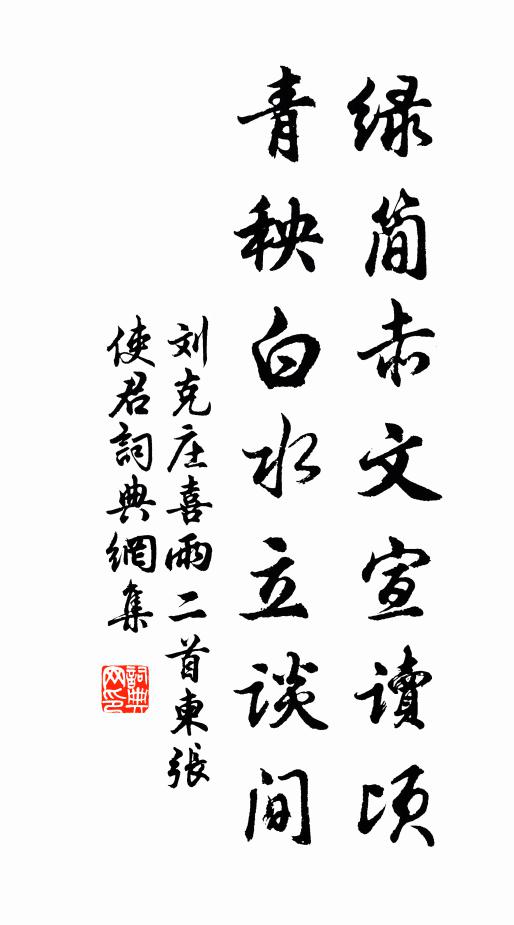 绿简赤文宣讀顷
青秧白水立谈间
刘克庄喜雨二首東張
使君詞典網集
詞典网印